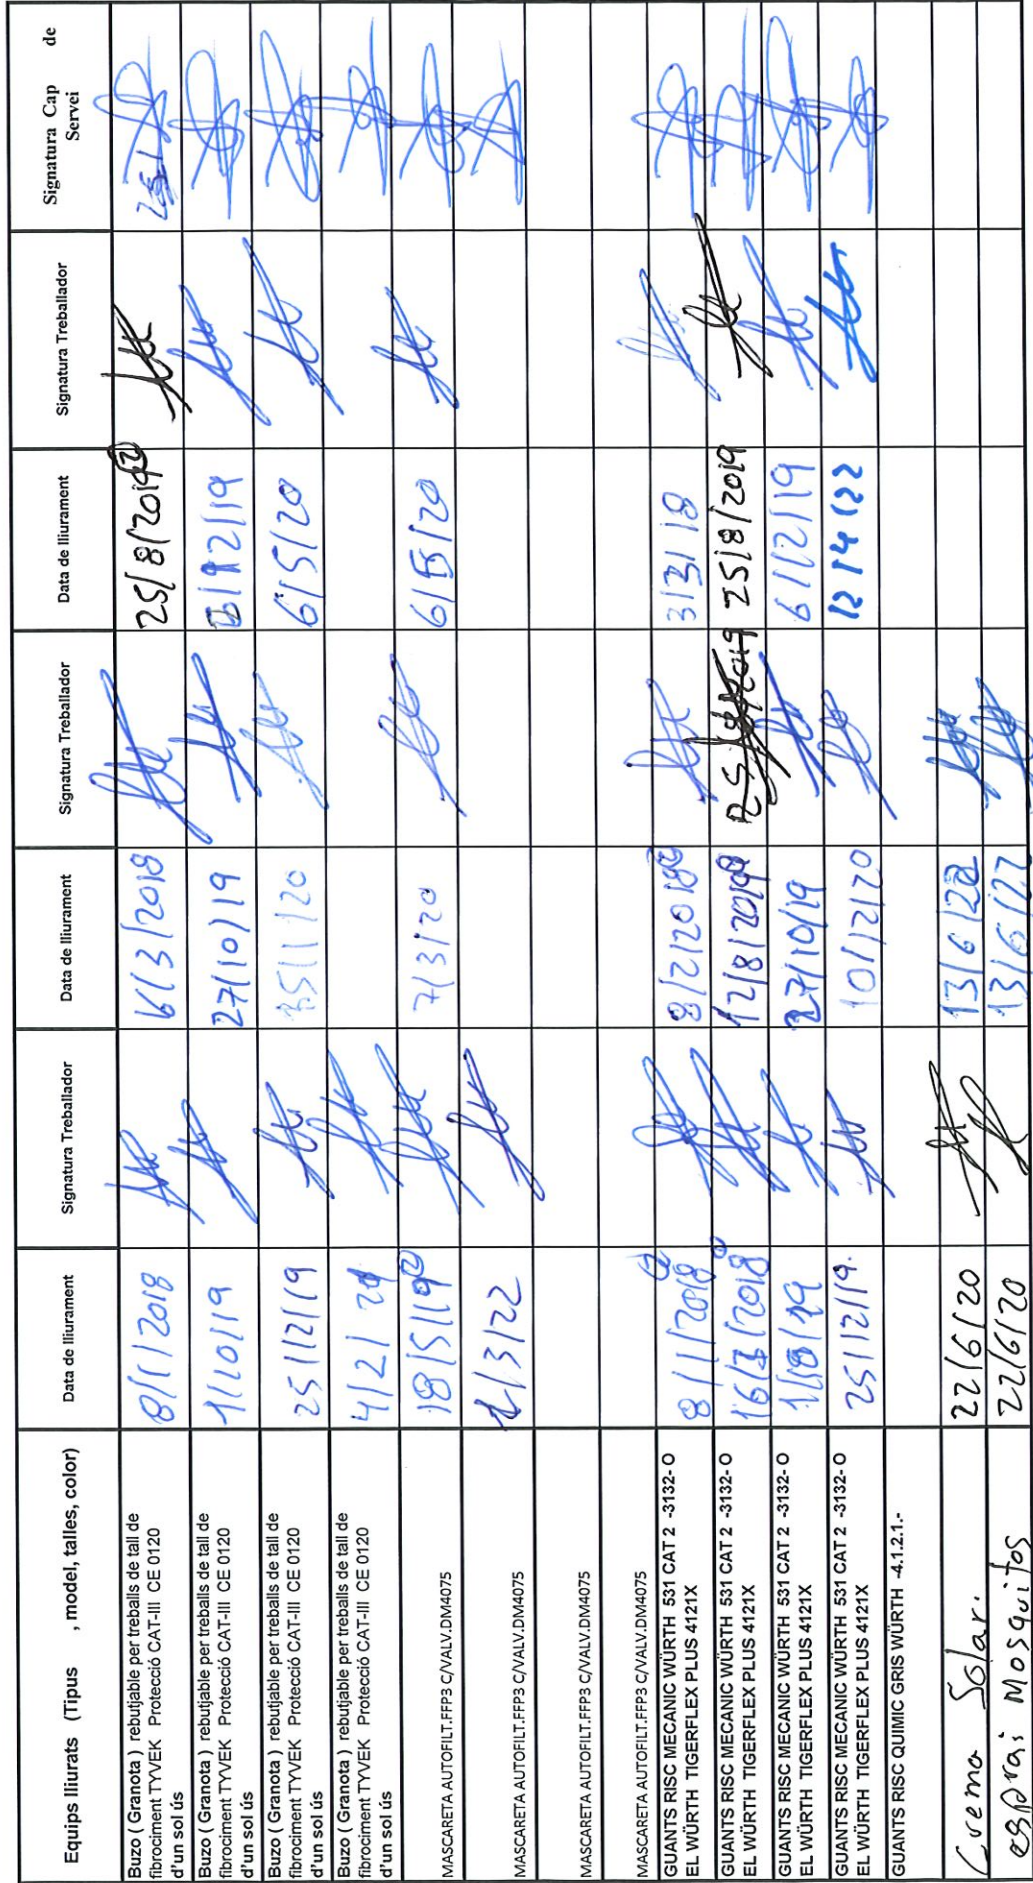 Equips lliurats (Tipus , model, talles, color)
Data de lliurament
Signatura Treballador
Data de lliurament
Signatura Treballador
Data de lliurament
Signatura Treballador
Signatura Cap de
Servei
Buzo ( Granota ) rebutjable per treballs de tall de
fibrociment TYVEK Protecció CAT-III CE 0120
d'un sol ús
8/1/2018
6/3/2018
25/8/2019
Buzo ( Granota ) rebutjable per treballs de tall de
fibrociment TYVEK Protecció CAT-III CE 0120
d'un sol ús
1/10/19
27/10/19
Buzo ( Granota ) rebutjable per treballs de tall de
fibrociment TYVEK Protecció CAT-III CE 0120
d'un sol ús
25/12/19
6/5/20
Buzo ( Granota ) rebutjable per treballs de tall de
fibrociment TYVEK Protecció CAT-III CE 0120
d'un sol ús
MASCARETA AUTOFILT.FFP3 C/VALV.DM4075
18/5/19
7/3/20
6/5/20
MASCARETA AUTOFILT.FFP3 C/VALV.DM4075
MASCARETA AUTOFILT.FFP3 C/VALV.DM4075
MASCARETA AUTOFILT.FFP3 C/VALV.DM4075
GUANTS RISC MECANIC WÜRTH 531 CAT 2 -3132- O
EL WÜRTH TIGERFLEX PLUS 4121X
8/1/2018
8/2/2018
3/3/18
GUANTS RISC MECANIC WÜRTH 531 CAT 2 -3132- O
EL WÜRTH TIGERFLEX PLUS 4121X
16/3/2018
25/8/2019
GUANTS RISC MECANIC WÜRTH 531 CAT 2 -3132- O
EL WÜRTH TIGERFLEX PLUS 4121X
27/10/19
6/12/19
GUANTS RISC MECANIC WÜRTH 531 CAT 2 -3132- O
EL WÜRTH TIGERFLEX PLUS 4121X
25/12/19.
10/12/20
12/4/22
GUANTS RISC QUIMIC GRIS WÜRTH -4.1.2.1.-
Crema Solar.
22/6/20
13/6/22
esprai Mosquitos
22/6/20
13/6/22